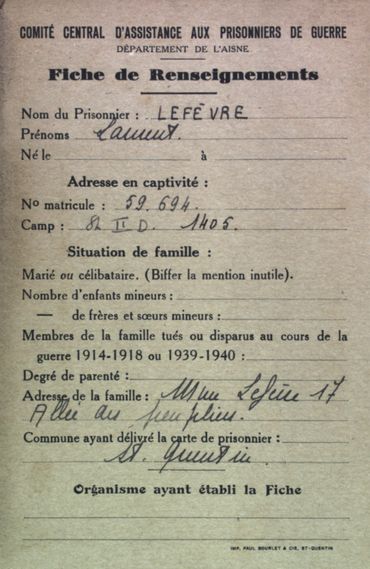 COMITÉ CENTRAL D'ASSISTANCE AUX PRISONNIERS DE GUERRE
DÉPARTEMENT DE L'AISNE
Fiche de Renseignements
Nom du Prisonnier : LEFÈVRE
Prénoms Laurent.
Né le à
Adresse en captivité :
No matricule : 59.694.
Camp : St II D. 1405.
Situation de famille :
Marié ou célibataire. (Biffer la mention inutile).
Nombre d'enfants mineurs :
— de frères et sœurs mineurs :
Membres de la famille tués ou disparus au cours de la
guerre 1914-1918 ou 1939-1940 :
Degré de parenté :
Adresse de la famille : Mme Lefèvre 17
Allée des peupliers.
Commune ayant délivré la carte de prisonnier :
St. Quentin.
Organisme ayant établi la Fiche
IMP. PAUL BOURLET & CIE, ST-QUENTIN